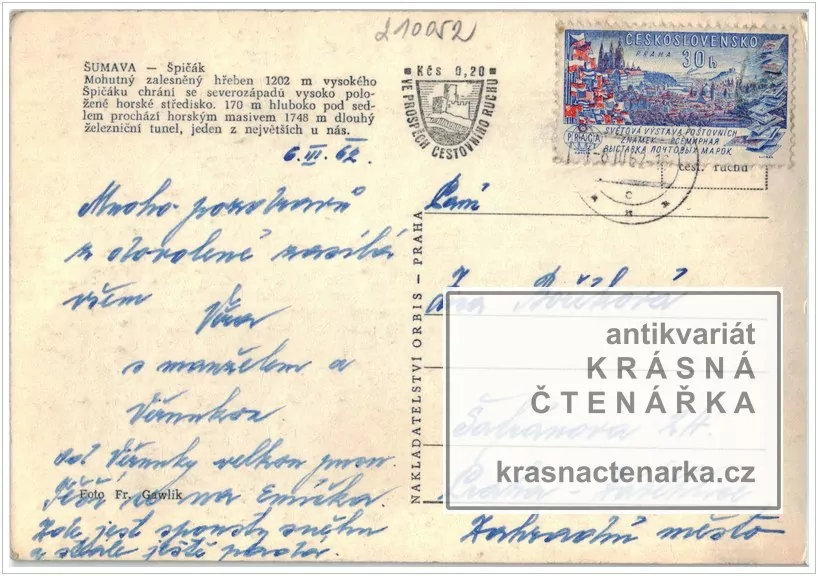 210052
ŠUMAVA — Špičák
Mohutný zalesněný hřeben 1202 m vysokého
Špičáku chrání se severozápadů vysoko polo-
žené horské středisko. 170 m hluboko pod sed-
lem prochází horským masivem 1748 m dlouhý
železniční tunel, jeden z největších u nás.
6. III. 62.
Mnoho pozdravů
z dovolené zasílá
všem
Věra
s manželem a
Věrunkou
od Věrunky velkou
Těší se na Emíčka
Zde jest spousty sněhu
a stále ještě padá.
Foto Fr. Gawlik
Kčs 0,20
VE PROSPĚCH CESTOVNÍHO RUCHU
ČESKOSLOVENSKO
PRAHA 30h
PRAGA
1962
SVĚTOVÁ VÝSTAVA POŠTOVNÍCH
ZNÁMEK - ВСЕМИРНАЯ
ВЫСТАВКА ПОЧТОВЫХ МАРОК
čest. ruchu
NAKLADATELSTVÍ ORBIS — PRAHA
Paní
antikvariát
KRÁSNÁ
ČTENÁŘKA
krasnactenarka.cz
Praha
Zahradní město